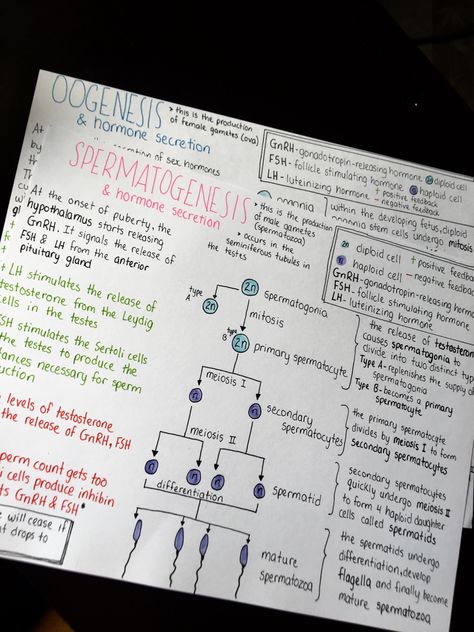 OOGENESIS
& hormone secretion
> this is the production
of female gametes (ova)
GnRH-gonadotropin-releasing hormone
FSH- follicle stimulating hormone
LH- luteinizing hormone
2n diploid cell
n haploid cell
+ positive feedback
- negative feedback
At
by
of sex hormones
within the developing fetus, diploid
stem cells undergo mitosis
SPERMATOGENESIS
& hormone secretion
> this is the production
of male gametes
(spermatozoa)
> occurs in the
seminiferous tubules in
the testes
2n diploid cell
n haploid cell
+ positive feedback
- negative feedback
GnRH-gonadotropin-releasing
FSH- follicle stimulating hormone
LH- luteinizing hormone
At the onset of puberty, the
hypothalamus starts releasing
GnRH. It signals the release of
FSH & LH from the anterior
pituitary gland
+ LH stimulates the release of
testosterone from the Leydig
cells in the testes
FSH stimulates the Sertoli cells
the testes to produce the
necessary for sperm
levels of testosterone
the release of GnRH, FSH
count gets too
cells produce inhibin
GnRH & FSH*
will cease if
drops to
type
A
2n
2n
spermatogonia
mitosis
type
B
2n
primary spermatocyte
meiosis I
n
n
secondary
spermatocytes
meiosis II
n
n
n
n
spermatid
differentiation
mature
spermatozoa
the release of
causes spermatogonia to
divide into two distinct
Type A- replenishes the supply of
spermatogonia
Type B-becomes a primary
spermatocyte
the primary spermatocyte
divides by meiosis I to form
secondary spermatocytes
secondary spermatocytes
quickly undergo meiosis II
to form 4 haploid daughter
cells called spermatids
the spermatids undergo
differentiation, develop
flagella and finally become
mature spermatozoa